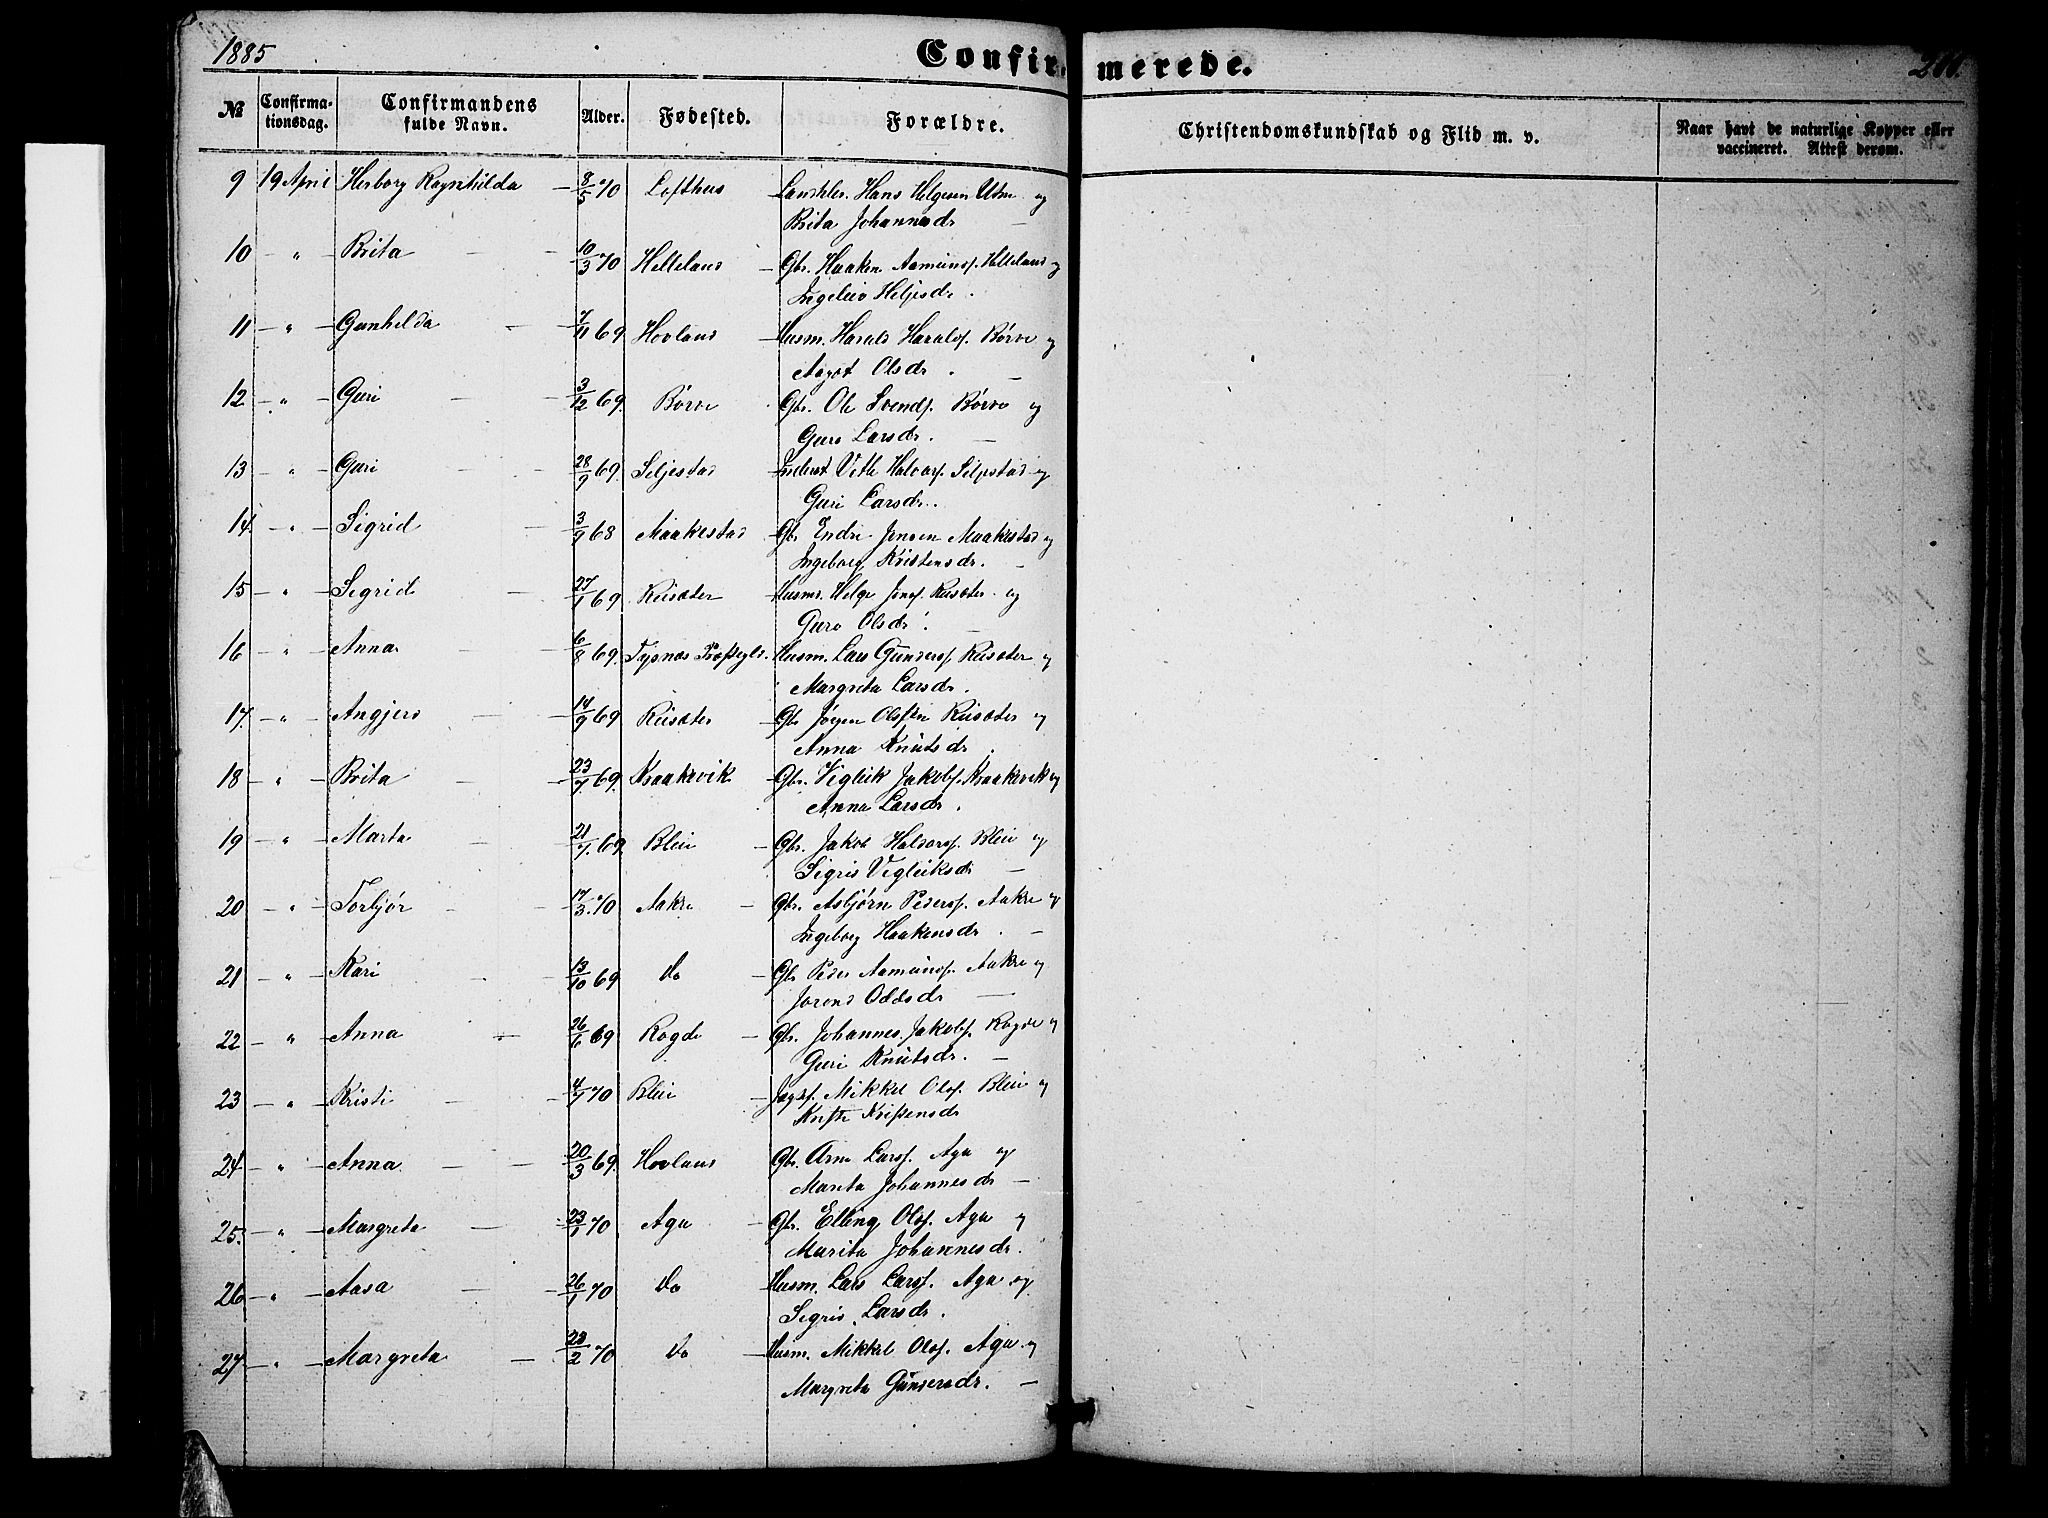 1885 Confirmerede.
№ Confirmationsdag. Confirmandens fulde Navn. Alder. Fødested. Forældre. Christendomskundskab og Flid m. v. Naar havt de naturlige Kopper eller vaccineret. Attest derom.
9 19 April Herborg Ragnhilda — 8/5 70 Lofthus Hans Helgesen Utne og
Brita Johannesdr
10 — " — Brita — 10/3 70 Helleland — Gbr. Haaken Aamunsf. Helleland og
Ingeleiv Heljesdr.
11 — " — Gunhilda — 7/11 69. Hovland Husm. Harald Haraldsf. Børve og
Aagot Olsdr. —
12 — " — Guri — 3/12 69. Børve Gbr. Ole Svendsf. Børve og
Guro Larsdr. —
13 — " — Guri — 28/9 69. Seljestad Vetle Halvorsf. Seljestad og
Guri Larsdr.
14. — " — Sigrid — 3/9 68 Maakestad Gbr Endre Jonsen Maakestad og
Ingeborg Kristensdr. —
15 — " — Sigrid — 27/1 69 Reisæter Husm. Helge Jonsf. Reisæter og
Guro Olsdr. —
16 — " — Anna 6/8 69. Tysnæs Præstegld. Husm. Lars Gundersf. Reisæter og
Margreta Larsdr.
17. — " — Angjerd — 14/9 69 Reisæter Gbr Jørgen Reisæter og
Anna Knutsdr.
18 — " — Brita — 23/7 69. Kraakevik Gbr. Vigleik Jakobsf. Kraakevik og
Anna Larsdr.
19 — " — Marta 21/7. 69. Bleie — Gbr. Jakob Halvorsf. Bleie og
Sigrid Vigleiksdr —
20 — " — Torbjør — 17/3. 70 Aakre — Gbr. Asbjørn Pedersf. Aakre og
Ingeborg Haakensdr. —
21 — " — Kari — 13/10 69 Do — Gbr Peder Aamunsf. Aakre og
Jorend Oddsdr —
22 — " — Anna — 26/6 69 Rogde — Gbr. Johannes Jakobsf. Rogde og
Guri Knutsdr. —
23 — " — Kristi — 4/1 70 Bleie — Mikkel Olsf. Bleie og
24 — " — Anna — — 20/3 69. Hovland Gbr. Arne Larsf. Aga og
Marita Johannesdr —
25. — " — Margreta — 23/1 70 Aga — Gbr. Elling Olsf. Aga og
Marita Johannesdr.
26 — " — Aasa — 26/1 70 Do Husm. Lars Larsf. Aga og
Sigrid Larsdr.
27 — " — Margreta — 23/2 70 Do — Husm. Mikkel Olsf. Aga og
Margreta Gundersdr. —